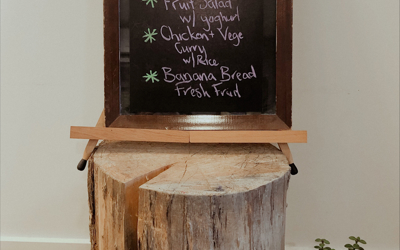 * Fruit Salad
w/ yoghurt
* Chicken + Vege
Curry
w/ Rice
* Banana Bread
Fresh Fruit